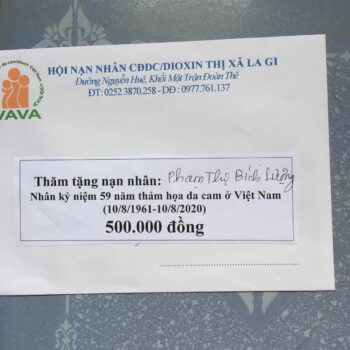 HỘI NẠN NHÂN CĐDC/DIOXIN THỊ XÃ LA GI
Đường Nguyễn Huệ, Khối Mặt Trận Đoàn Thể
ĐT: 0252 3870.258 - DĐ: 0977.761.137
VAVA
Thăm tặng nạn nhân: Phạm Thị Bích Lưỡng
Nhân kỷ niệm 59 năm thảm họa da cam ở Việt Nam
(10/8/1961-10/8/2020)
500.000 đồng